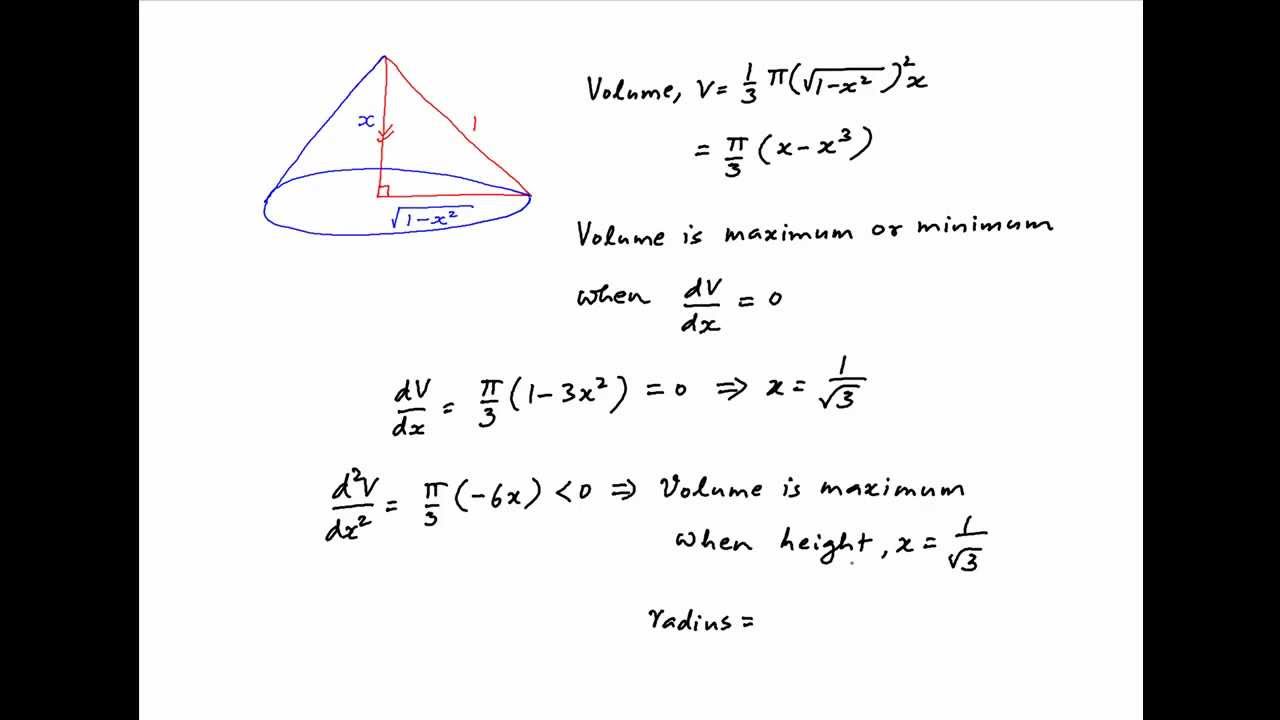 x
1
√(1-x²)
Volume, V = 1/3 π(√(1-x²))² x
= π/3 (x - x³)
Volume is maximum or minimum
when dV/dx = 0
dV/dx = π/3 (1 - 3x²) = 0 ⇒ x = 1/√3
d²V/dx² = π/3 (-6x) < 0 ⇒ Volume is maximum
when height, x = 1/√3
radius =